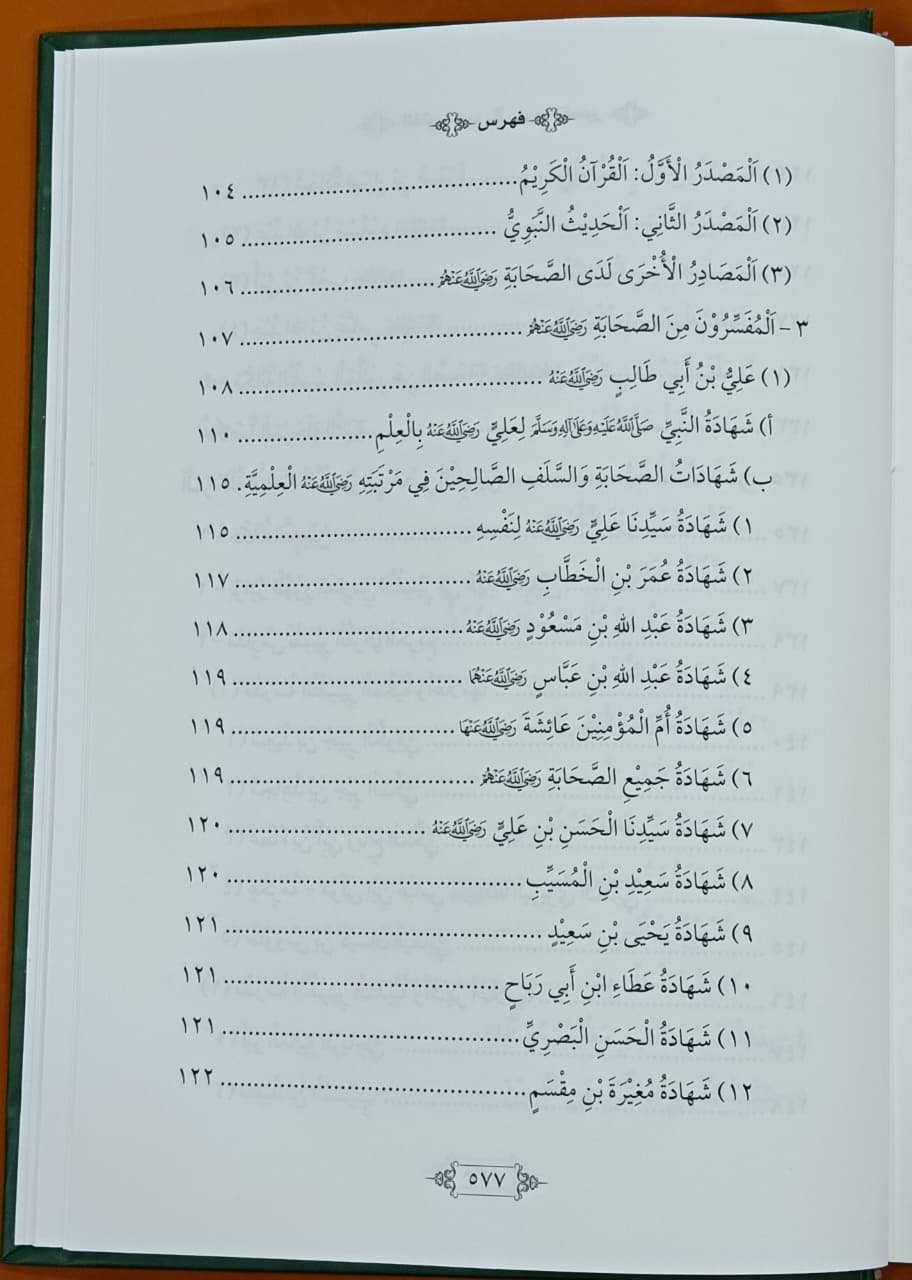 فهرس
(١) اَلْمَصْدَرُ الْأَوَّلُ: اَلْقُرْآنُ الْكَرِيْمُ ................ ١٠٤
(٢) اَلْمَصْدَرُ الثَّانِي: اَلْحَدِيْثُ النَّبَوِيُّ ................ ١٠٥
(٣) اَلْمَصَادِرُ الْأُخْرَى لَدَى الصَّحَابَةِ رَضِيَ اللَّهُ عَنْهُمْ ................ ١٠٦
٣- اَلْمُفَسِّرُوْنَ مِنَ الصَّحَابَةِ رَضِيَ اللَّهُ عَنْهُمْ ................ ١٠٧
(١) عَلِيُّ بْنُ أَبِي طَالِبٍ رَضِيَ اللَّهُ عَنْهُ ................ ١٠٨
أ) شَهَادَةُ النَّبِيِّ صَلَّى اللَّهُ عَلَيْهِ وَعَلَى آلِهِ وَسَلَّمَ لِعَلِيٍّ رَضِيَ اللَّهُ عَنْهُ بِالْعِلْمِ ................ ١١٠
ب) شَهَادَاتُ الصَّحَابَةِ وَالسَّلَفِ الصَّالِحِيْنَ فِي مَرْتَبَتِهِ رَضِيَ اللَّهُ عَنْهُ الْعِلْمِيَّةِ . ١١٥
١) شَهَادَةُ سَيِّدِنَا عَلِيٍّ رَضِيَ اللَّهُ عَنْهُ لِنَفْسِهِ ................ ١١٥
٢) شَهَادَةُ عُمَرَ بْنِ الْخَطَّابِ رَضِيَ اللَّهُ عَنْهُ ................ ١١٧
٣) شَهَادَةُ عَبْدِ اللهِ بْنِ مَسْعُوْدٍ رَضِيَ اللَّهُ عَنْهُ ................ ١١٨
٤) شَهَادَةُ عَبْدِ اللهِ بْنِ عَبَّاسٍ رَضِيَ اللَّهُ عَنْهُمَا ................ ١١٩
٥) شَهَادَةُ أُمِّ الْمُؤْمِنِيْنَ عَائِشَةَ رَضِيَ اللَّهُ عَنْهَا ................ ١١٩
٦) شَهَادَةُ جَمِيْعِ الصَّحَابَةِ رَضِيَ اللَّهُ عَنْهُمْ ................ ١١٩
٧) شَهَادَةُ سَيِّدِنَا الْحَسَنِ بْنِ عَلِيٍّ رَضِيَ اللَّهُ عَنْهُ ................ ١٢٠
٨) شَهَادَةُ سَعِيْدِ بْنِ الْمُسَيِّبِ ................ ١٢٠
٩) شَهَادَةُ يَحْيَى بْنِ سَعِيْدٍ ................ ١٢١
١٠) شَهَادَةُ عَطَاءِ ابْنِ أَبِي رَبَاحٍ ................ ١٢١
١١) شَهَادَةُ الْحَسَنِ الْبَصْرِيِّ ................ ١٢١
١٢) شَهَادَةُ مُغِيْرَةَ بْنِ مِقْسَمٍ ................ ١٢٢
٥٧٧